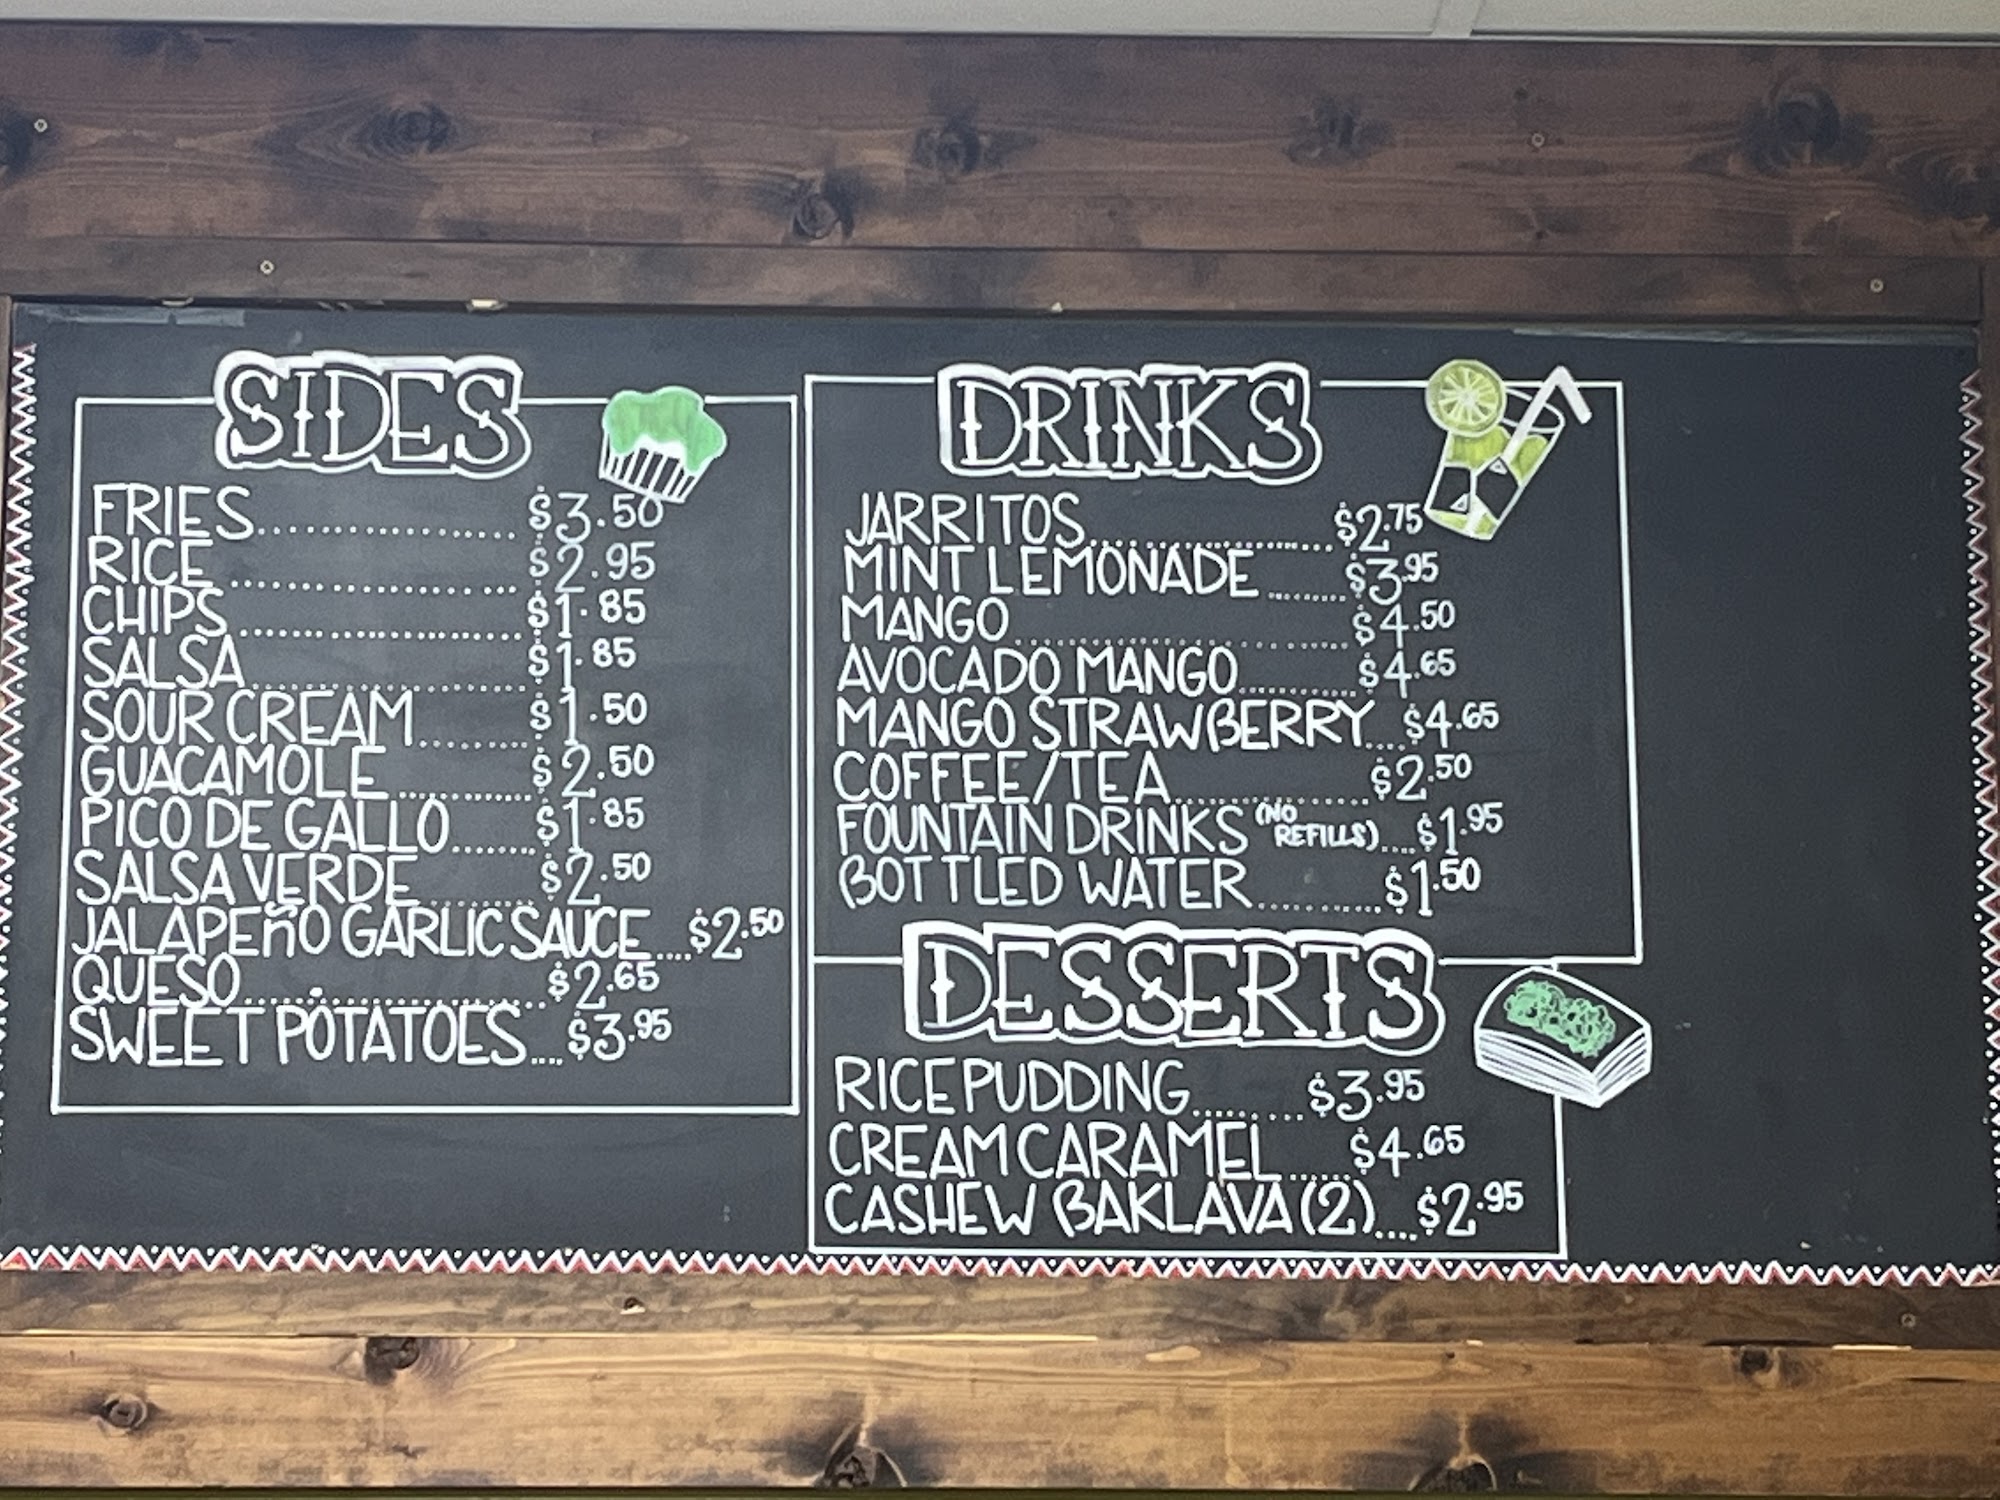 SIDES
FRIES.................. $3.50
RICE .................. $2.95
CHIPS.................. $1.85
SALSA.................. $1.85
SOUR CREAM......... $1.50
GUACAMOLE.......... $2.50
PICO DE GALLO....... $1.85
SALSA VERDE......... $2.50
JALAPEñO GARLIC SAUCE.... $2.50
QUESO.................... $2.65
SWEET POTATOES.... $3.95
DRINKS
JARRITOS.................. $2.75
MINT LEMONADE........ $3.95
MANGO........................ $4.50
AVOCADO MANGO......... $4.65
MANGO STRAWBERRY.... $4.65
COFFEE/TEA.............. $2.50
FOUNTAIN DRINKS (NO REFILLS).... $1.95
BOTTLED WATER.......... $1.50
DESSERTS
RICE PUDDING......... $3.95
CREAM CARAMEL...... $4.65
CASHEW BAKLAVA (2).... $2.95